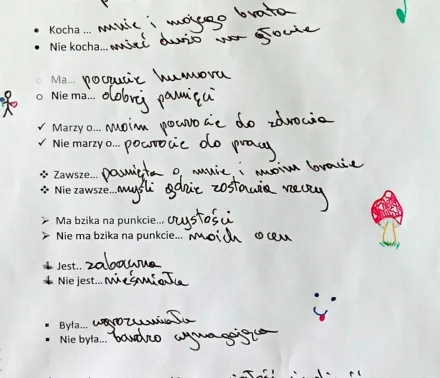 • Kocha ... mnie i mojego brata
• Nie kocha... mieć dużo na głowie
○ Ma... poczucie humoru
○ Nie ma... dobrej pamięci
✓ Marzy o... moim powrocie do zdrowia
✓ Nie marzy o... powrocie do pracy
❖ Zawsze... pamięta o mnie i moim bracie
❖ Nie zawsze... myśli gdzie zostawia rzeczy
➢ Ma bzika na punkcie... czystości
➢ Nie ma bzika na punkcie... moich ocen
Jest.. zabawna
Nie jest... nieśmiała
▪ Była... wyrozumiała
▪ Nie była... bardzo wymagająca